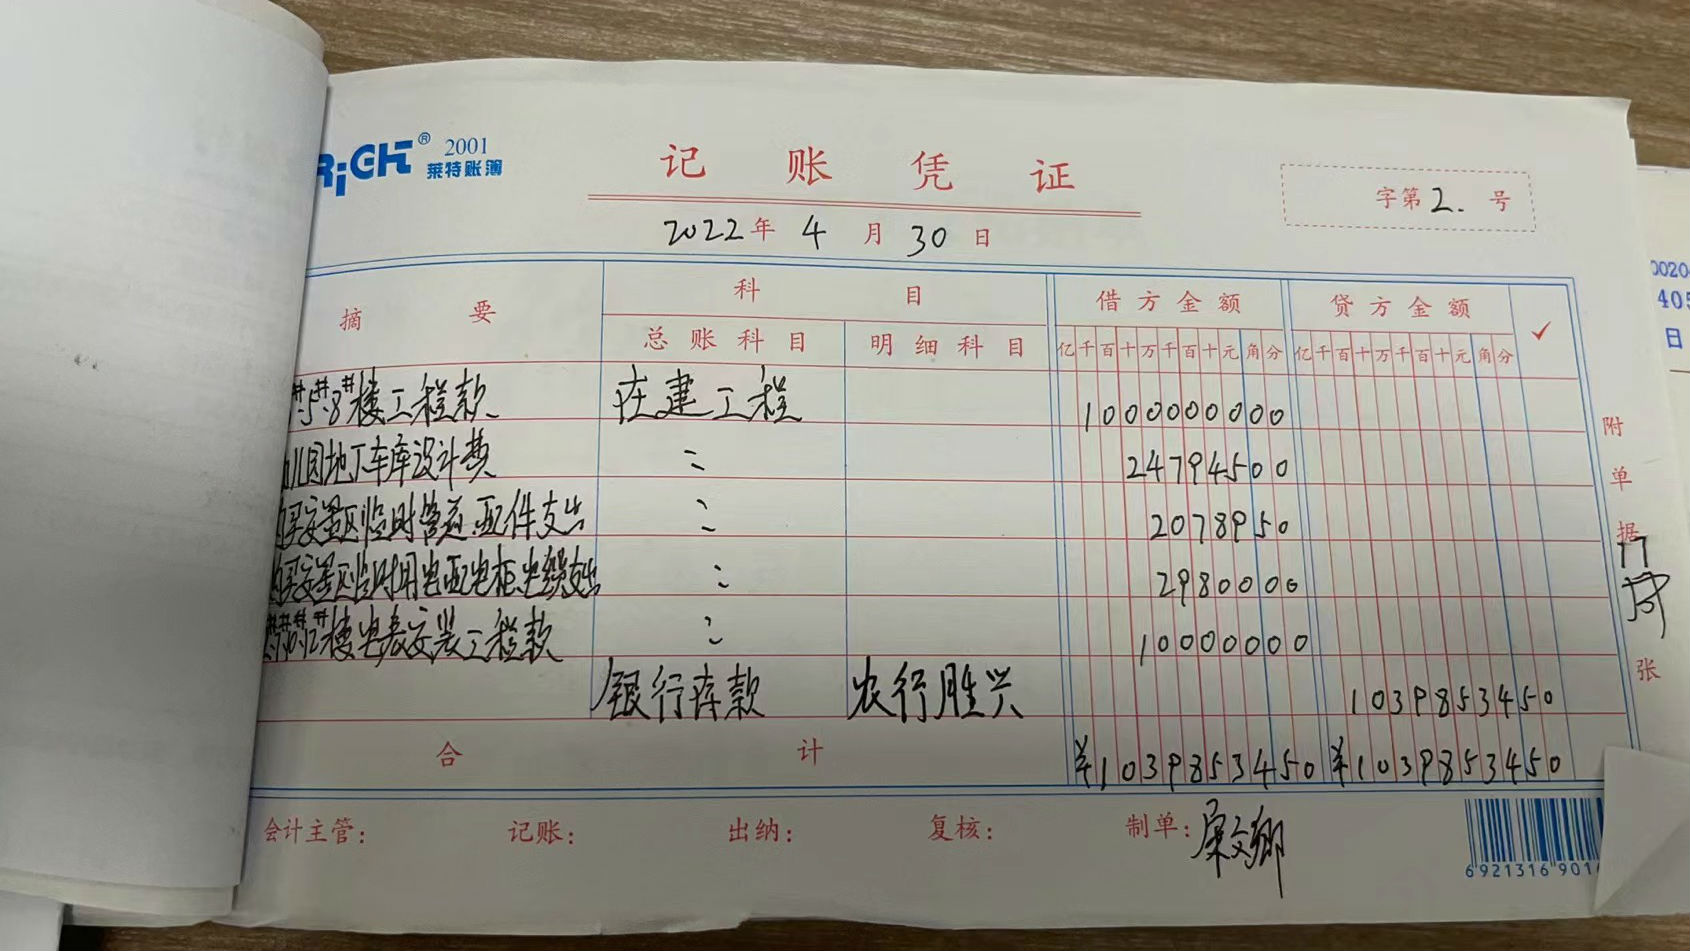 RIGHT® 2001
莱特账簿
记账凭证
2022年4月30日
字第2.号
摘要 科目 借方金额 贷方金额 ✓
总账科目 明细科目 亿千百十万千百十元角分 亿千百十万千百十元角分
#5#8#楼工程款 在建工程 1000000000
儿园地下车库设计费 〃 24794500
买安置区临时管道.配件支出 〃 2078950
买安置区临时用电配电柜电缆支出 〃 2980000
楼电表安装工程款 〃 10000000
银行存款 农行胜兴 1039853450
合计 ¥1039853450 ¥1039853450
附单据17张
会计主管： 记账： 出纳： 复核： 制单：
6921316901
0020
405
日